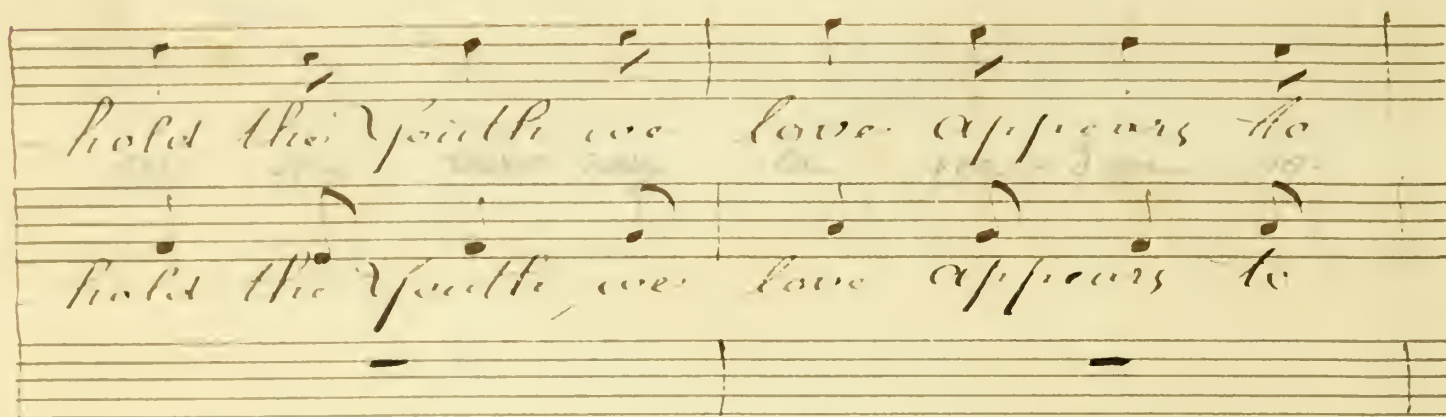 hold the Youth we love appears to
hold the Youth, we love appears to